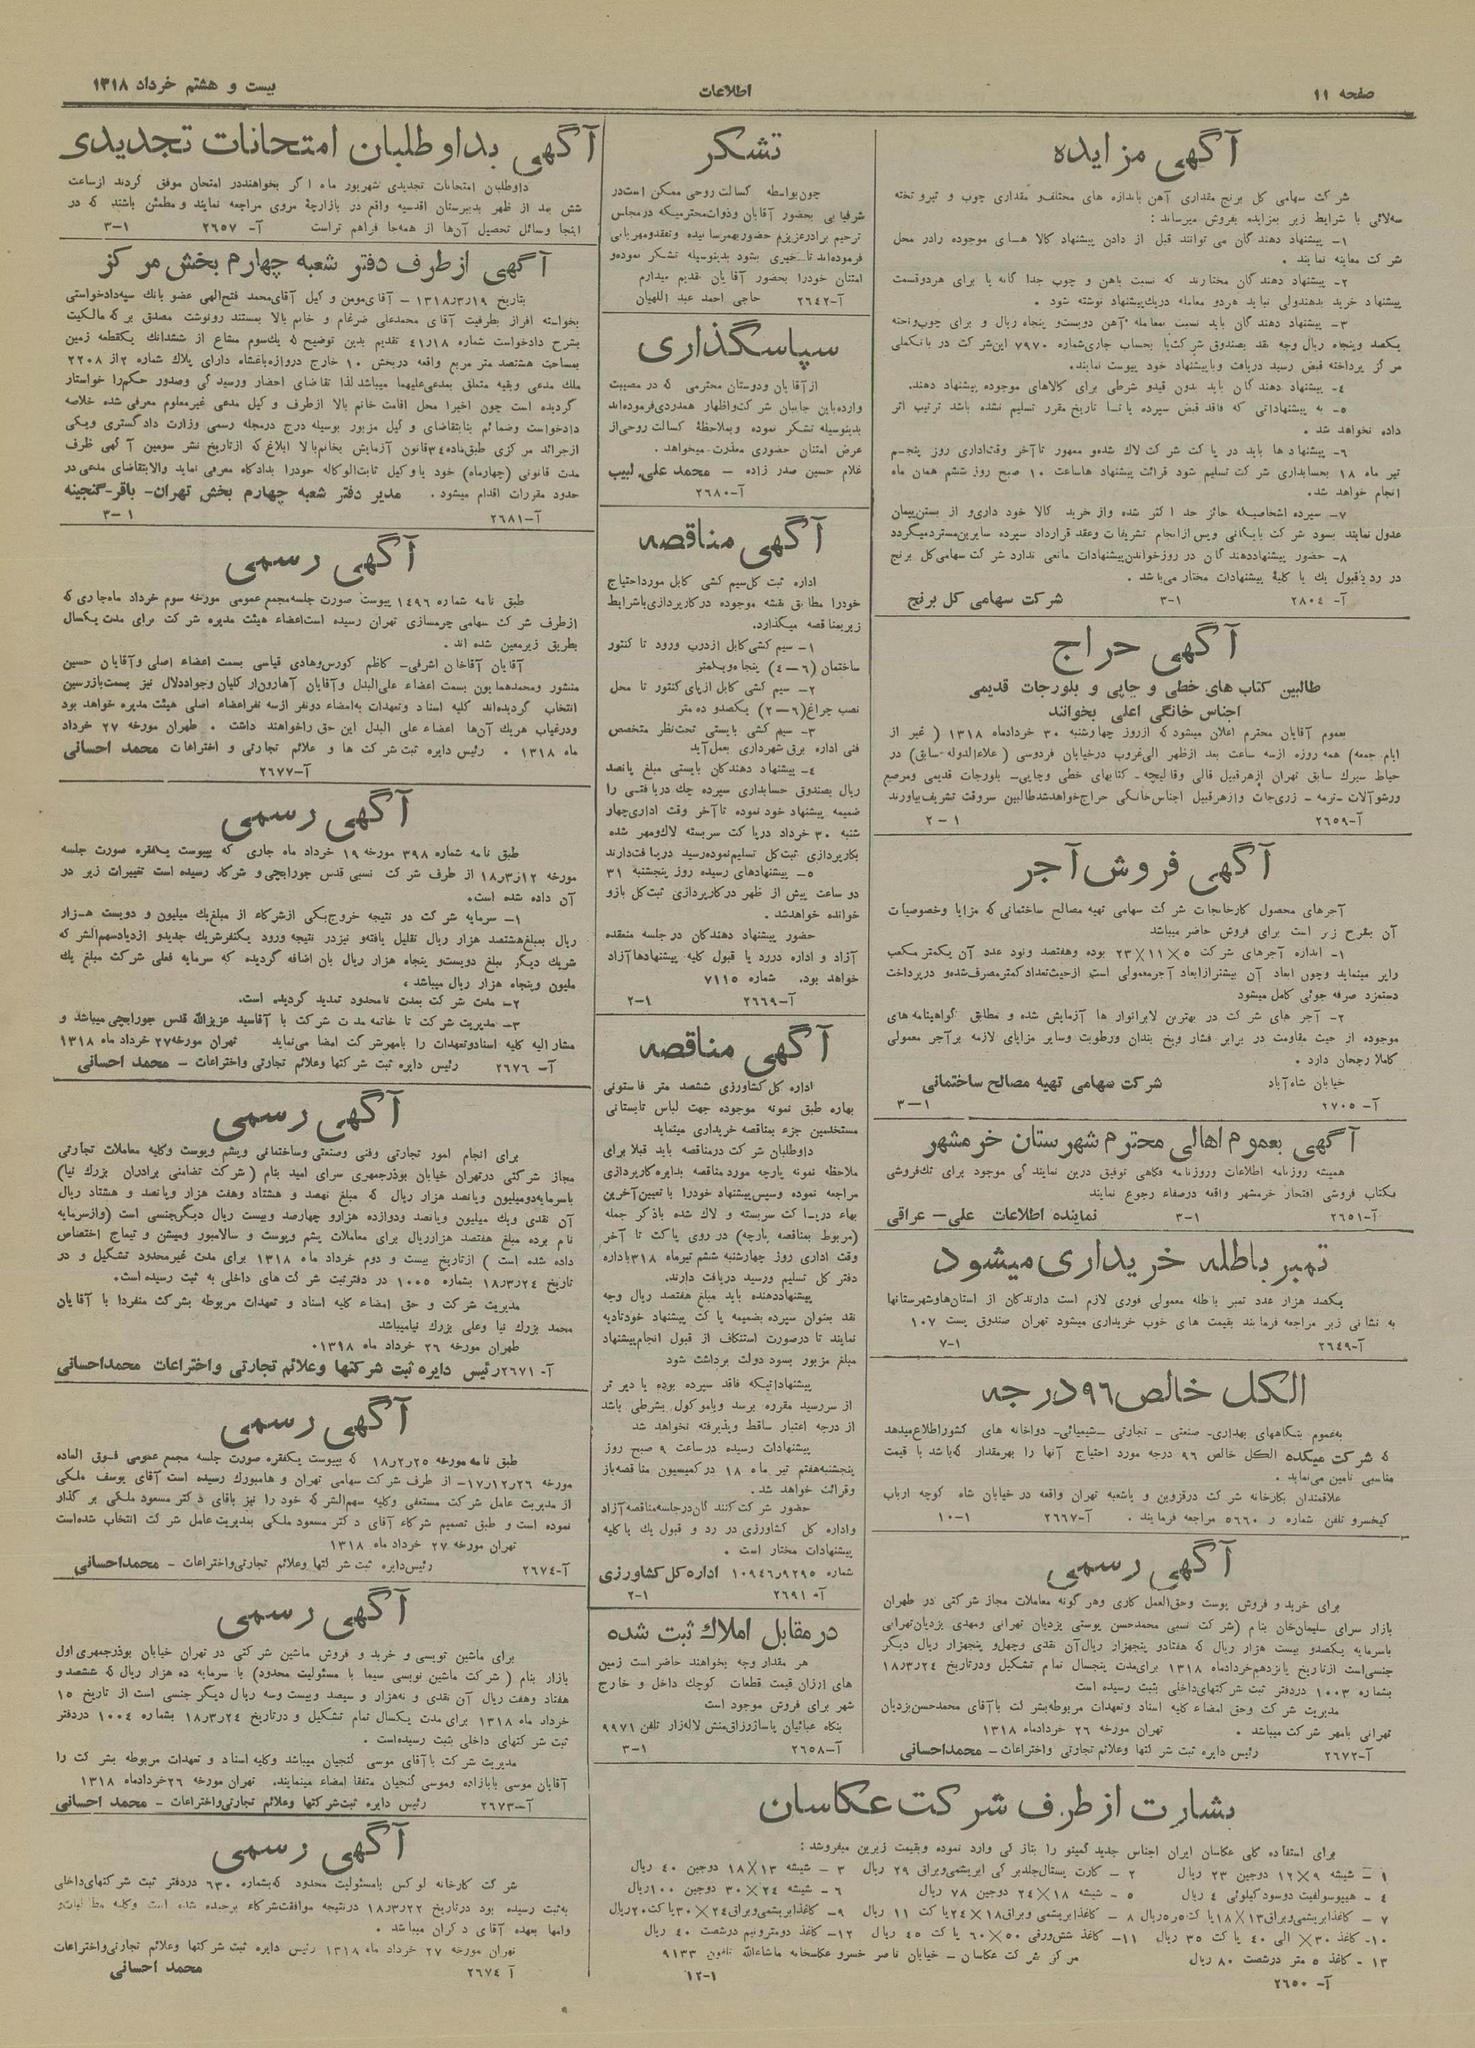 صفحه ۱۱
اطلاعات
بیست و هشتم خرداد ۱۳۱۸
آگهی مزایده
شرکت سهامی کل برنج مقداری آهن باندازه های مختلف و مقداری چوب و تیر و تخته
سه‌لائی با شرایط زیر بمزایده بفروش میرساند :
۱– پیشنهاد دهندگان می توانند قبل از دادن پیشنهاد کالا های موجوده رادر محل
شرکت معاینه نمایند .
۲– پیشنهاد دهندگان مختارند که نسبت بآهن و چوب جدا گانه یا برای هردوقسمت
پیشنهاد خرید بدهندولی نباید هردو معامله دریك‌پیشنهاد نوشته شود .
۳– پیشنهاد دهندگان باید نسبت بمعامله آهن دویست و پنجاه ریال و برای چوب‌وتخته
یکصد وپنجاه ریال وجه نقد بصندوق شرکت‌یا بحساب جاری‌شماره ۷۹۷۰ این‌شرکت در بانك‌ملی
مرکز پرداخته قبض رسید دریافت وباپیشنهاد خود پیوست نمایند.
۴– پیشنهاد دهندگان باید بدون قیدو شرطی برای کالاهای موجوده پیشنهاد دهند.
۵– به پیشنهاداتی که فاقد قبض سپرده یا تا تاریخ مقرر تسلیم نشده باشد ترتیب اثر
داده نخواهد شد .
۶– پیشنهاد ها باید در پاکت شرکت لاك شده‌و ممهور تاآخر وقت‌اداری روز پنجم
تیر ماه ۱۸ بحسابداری شرکت تسلیم شود قرائت پیشنهاد هاساعت ۱۰ صبح روز ششم همان ماه
انجام خواهد شد.
۷– سپرده اشخاصیکه حائز حد اکثر شده واز خرید کالا خود داری‌و از بستن‌پیمان
عدول نمایند بسود شرکت بایگانی وپس ازانجام تشریفات وعقد قرارداد سپرده سایرین‌مستردمیگردد
۸– حضور پیشنهاددهندگان در روزخواندن‌پیشنهادات مانعی ندارد شرکت سهامی‌کل برنج
در رد یاقبول یك یا کلیۀ پیشنهادات مختار می‌باشد .
آ– ۲۸۰۴ ۱–۳ شرکت سهامی کل برنج
آگهی حراج
طالبین کتاب های خطی و چاپی و بلورجات قدیمی
اجناس خانگی اعلی بخوانند
بعموم آقایان محترم اعلان میشود که ازروز چهارشنبه ۳۰ خردادماه ۱۳۱۸ ( غیر از
ایام جمعه) همه روزه ازسه ساعت بعد ازظهر الی‌غروب درخیابان فردوسی ( علاءالدوله‌سابق) در
حیاط سیرك سابق تهران ازهرقبیل قالی وقالیچه– کتابهای خطی وچاپی– بلورجات قدیمی ومرصع
ورشوآلات –ترمه – زری‌جات وازهرقبیل اجناس‌خانگی حراج‌خواهدشدطالبین سروقت تشریف‌بیاورند
آ–۲۶۵۹ ۱–۲
آگهی فروش آجر
آجرهای محصول کارخانجات شرکت سهامی تهیه مصالح ساختمانی‌که مزایا وخصوصیات
آن بشرح زیر است برای فروش حاضر میباشد
۱– اندازه آجرهای شرکت ۵×۱۱×۲۳ بوده وهفتصد ونود عدد آن یکمتر مکعب
راپر مینماید وچون ابعاد آن بیشترازابعاد آجرمعمولی است ازحیث‌تعداد کمترمصرف‌شده‌و درپرداخت
دستمزد صرفه جوئی کامل میشود
۲– آجر های شرکت در بهترین لابراتوار ها آزمایش شده و مطابق گواهینامه‌های
موجوده از حیث مقاومت در برابر فشار ویخ بندان ورطوبت وسایر مزایای لازمه برآجر معمولی
کاملا رجحان دارد .
خیابان شاه‌آباد شرکت سهامی تهیه مصالح ساختمانی
آ– ۲۷۰۵ ۱–۳
آگهی بعموم اهالی محترم شهرستان خرمشهر
همیشه روزنامه اطلاعات وروزنامه فکاهی توفیق درین نمایندگی موجود برای تك‌فروشی
بکتاب فروشی افتخار خرمشهر واقعه درصفاء رجوع نمایند
آ–۲۶۵۱ ۱–۳ نماینده اطلاعات علی– عراقی
تمبر باطله خریداری میشود
یکصد هزار عدد تمبر باطله معمولی فوری لازم است دارندگان از استان‌هاوشهرستانها
به نشانی زیر مراجعه فرمایند بقیمت های خوب خریداری میشود تهران صندوق پست ۱۰۷
آ–۲۶۴۹ ۱–۷
الکل خالص ۹۶ درجه
به‌عموم بنگاههای بهداری– صنعتی – تجارتی –شیمیائی– دواخانه های کشوراطلاع‌میدهد
که شرکت میکده الکل خالص ۹۶ درجه مورد احتیاج آنها را بهرمقدار که‌باشد با قیمت
مناسبی تامین می‌نماید .
علاقمندان بکارخانه شرکت درقزوین و یاشعبه تهران واقعه در خیابان شاه کوچه ارباب
کیخسرو تلفن شماره ر ۵۶۶۰ مراجعه فرمایند . آ–۲۶۶۷ ۱–۱۰
آگهی رسمی
برای خرید و فروش پوست وحق‌العمل کاری وهرگونه معاملات مجاز شرکتی در طهران
بازار سرای سلیمان‌خان بنام (شرکت نسبی محمدحسن پوستی یزدیان تهرانی ومهدی یزدیان‌تهرانی
باسرمایه یکصدو بیست هزار ریال که هفتادو پنجهزار ریال‌آن نقدی وچهل‌و پنجهزار ریال دیگر
جنسی‌است ازتاریخ پانزدهم‌خردادماه ۱۳۱۸ برای‌مدت پنجسال تمام تشکیل ودرتاریخ ۱۸ر۳ر۲۴
بشماره ۱۰۰۳ دردفتر ثبت شرکتهای‌داخلی بثبت رسیده است
مدیریت شرکت وحق امضاء کلیه اسناد وتعهدات مربوطه‌بشرکت باآقای محمدحسن‌یزدیان
تهرانی بامهر شرکت میباشد . تهران مورخه ۲۶ خردادماه ۱۳۱۸
آ–۲۶۷۲ رئیس دایره ثبت شرکتها وعلائم تجارتی واختراعات – محمداحسانی
تشکر
چون‌بواسطه کسالت روحی ممکن است‌در
شرفیابی بحضور آقایان وذوات‌محترمیکه درمجلس
ترحیم برادرعزیزم حضوربهمرسانیده وتفقدومهربانی
فرموده‌اند تاخیری بشود بدینوسیله تشکر نموده‌و
امتنان خودرا بحضور آقایان تقدیم میدارم
آ–۲۶۴۲ حاجی احمد عبداللهیان
سپاسگذاری
ازآقایان ودوستان محترمی که در مصیبت
وارده‌باین جانبان شرکت‌واظهار همدردی‌فرموده‌اند
بدینوسیله تشکر نموده وبملاحظۀ کسالت روحی‌از
عرض امتنان حضوری معذرت میخواهد.
غلام حسین صدر زاده – محمد علی لبیب
آ–۲۶۸۰
آگهی مناقصه
اداره ثبت کل‌سیم کشی کابل مورداحتیاج
خودرا مطابق نقشه موجوده درکارپردازی‌باشرایط
زیربمناقصه میگذارد.
۱– سیم کشی‌کابل ازدرب ورود تا کنتور
ساختمان (۶–۴) پنجاه‌ویکمتر
۲– سیم کشی کابل ازپای کنتور تا محل
نصب چراغ(۶–۲) یکصدو ده متر
۳– سیم کشی بایستی تحت‌نظر متخصص
فنی اداره برق شهرداری بعمل‌آید
۴– پیشنهاد دهندگان بایستی مبلغ پانصد
ریال بصندوق حسابداری سپرده چك دریافتی را
ضمیمه پیشنهاد خود نموده تاآخر وقت اداری‌چهار
شنبه ۳۰ خرداد درپاکت سربسته لاك‌ومهر شده
بکارپردازی ثبت‌کل تسلیم‌نموده‌رسید دریافت‌دارند
۵– پیشنهادهای رسیده روز پنجشنبه ۳۱
دو ساعت پیش از ظهر درکارپردازی ثبت‌کل بازو
خوانده خواهدشد.
حضور پیشنهاد دهندگان در جلسه منعقده
آزاد و اداره دررد یا قبول کلیه پیشنهادها آزاد
خواهد بود. شماره ۷۱۱۵
آ–۲۶۶۹ ۱–۲
آگهی مناقصه
اداره کل‌کشاورزی ششصد متر فاستونی
بهاره طبق نمونه موجوده جهت لباس تابستانی
مستخدمین جزء بمناقصه خریداری مینماید
داوطلبان شرکت درمناقصه باید قبلا برای
ملاحظه نمونه پارچه موردمناقصه بدایره‌کارپردازی
مراجعه نموده وسپس‌پیشنهاد خودرا باتعیین‌آخرین
بهاء درپاکت سربسته و لاك شده باذکر جمله
(مربوط بمناقصه پارچه) در روی پاکت تا آخر
وقت اداری روز چهارشنبه ششم تیرماه ۳۱۸باداره
دفتر کل تسلیم ورسید دریافت دارند.
پیشنهاددهنده باید مبلغ هفتصد ریال وجه
نقد بعنوان سپرده بضمیمه پاکت پیشنهاد خودتادیه
نمایند تا درصورت استنکاف از قبول انجام‌پیشنهاد
مبلغ مزبور بسود دولت برداشت شود
پیشنهاداتیکه فاقد سپرده بوده یا دیرتر
از سررسید مقرره برسد ویاموکول بشرطی باشد
از درجه اعتبار ساقط وپذیرفته نخواهد شد
پیشنهادات رسیده درساعت ۹ صبح روز
پنجشنبه‌هفتم تیر ماه ۱۸ درکمیسیون مناقصه‌باز
وقرائت خواهد شد.
حضور شرکت‌کنندگان‌درجلسه‌مناقصه‌آزاد
واداره کل کشاورزی در رد و قبول یك یاکلیه
پیشنهادات مختار است .
شماره ۱۰۹۴۶ر۹۲۹۵ اداره کل کشاورزی
آ– ۲۶۹۱ ۱–۲
در مقابل املاك ثبت شده
هر مقدار وجه بخواهند حاضر است زمین
های ارزان قیمت قطعات کوچك داخل و خارج
شهر برای فروش موجود است
بنگاه عبائیان پاساژرزاق‌منش لاله‌زار تلفن ۹۹۷۱
آ–۲۶۵۸ ۱–۳
آگهی بداوطلبان امتحانات تجدیدی
داوطلبان امتحانات تجدیدی شهریور ماه اگر بخواهنددر امتحان موفق گردند ازساعت
شش بعد از ظهر بدبیرستان اقدسیه واقع در بازارچۀ مروی مراجعه نمایند و مطمئن باشند که در
اینجا وسائل تحصیل آن‌ها از همه‌جا فراهم تراست آ– ۲۶۵۷ ۱–۳
آگهی ازطرف دفتر شعبه چهارم بخش مرکز
بتاریخ ۱۳۱۸ر۳ر۱۹ – آقای‌مومن و کیل آقای‌محمد فتح‌الهی عضو بانك سپه‌دادخواستی
بخواسته افراز بطرفیت آقای محمدعلی ضرغام و خانم بالا بمستند رونوشت مصدق برگه مالکیت
بشرح دادخواست شماره ۴۱ر۱۸ تقدیم بدین توضیح که یك‌سوم مشاع از ششدانك یکقطعه زمین
بمساحت هشتصد متر مربع واقعه دربخش ۱۰ خارج دروازه‌باغشاه دارای پلاك شماره ۲از ۲۲۰۸
ملك مدعی وبقیه متعلق بمدعی‌علیهما میباشد لذا تقاضای احضار ورسیدگی وصدور حکم‌را خواستار
گردیده است چون اخیرا محل اقامت خانم بالا ازطرف و کیل مدعی غیرمعلوم معرفی شده خلاصه
دادخواست وضمائم بنابتقاضای وکیل مزبور بوسیله درج درمجله رسمی وزارت دادگستری ویکی
ازجرائد مرکزی طبق‌ماده۳۴قانون آزمایش بخانم‌بالا ابلاغ‌که ازتاریخ نشر سومین آگهی ظرف
مدت قانونی (چهارماه) خود یاوکیل ثابت‌الوکاله خودرا بدادگاه معرفی نماید والابتقاضای مدعی‌در
حدود مقررات اقدام میشود . مدیر دفتر شعبه چهارم بخش تهران– باقر–گنجینه
آ–۲۶۸۱ ۱–۳
آگهی رسمی
طبق نامه شماره ۱۴۹۶ پیوست صورت جلسه‌مجمع عمومی مورخه سوم خرداد ماه‌جاری که
ازطرف شرکت سهامی چرمسازی تهران رسیده است‌اعضاء هیئت مدیره شرکت برای مدت یکسال
بطریق زیرمعین شده اند.
آقایان آقاخان اشرفی– کاظم کورس‌وهادی قیاسی بسمت اعضاء اصلی وآقایان حسین
منشور ومحمدهمایون بسمت اعضاء علی‌البدل وآقایان آهارون‌ارکلیان وجواددلال نیز بسمت‌بازرسین
انتخاب گردیده‌اند کلیه اسناد وتعهدات به‌امضاء دونفر ازسه نفراعضاء اصلی هیئت مدیره خواهد بود
ودرغیاب هریك آن‌ها اعضاء علی البدل این حق راخواهند داشت . طهران مورخه ۲۷ خرداد
ماه ۱۳۱۸ . رئیس دایره ثبت شرکت ها و علائم تجارتی و اختراعات محمد احسانی
آ–۲۶۷۷
آگهی رسمی
طبق نامه شماره ۳۹۸ مورخه ۱۹ خرداد ماه جاری که بپیوست یکفقره صورت جلسه
مورخه ۱۲ر۳ر۱۸ از طرف شرکت نسبی قدس جورابچی‌و شرکاء رسیده است تغییرات زیر در
آن داده شده است.
۱– سرمایه شرکت در نتیجه خروج‌یکی ازشرکاء از مبلغ‌یك میلیون و دویست هزار
ریال بمبلغ‌هشتصد هزار ریال تقلیل یافته‌و نیزدر نتیجه ورود یکنفرشریك جدیدو ازدیادسهم‌الشرکه
شریك دیگر مبلغ دویست‌و پنجاه هزار ریال بآن اضافه گردیده که سرمایه فعلی شرکت مبلغ یك
ملیون وپنجاه هزار ریال میباشد ،
۲– مدت شرکت بمدت نامحدود تمدید گردیده است.
۳– مدیریت شرکت تا خاتمه مدت شرکت با آقاسید عزیزالله قدس جورابچی میباشد و
مشار الیه کلیه اسنادوتعهدات را بامهرشرکت امضا می‌نماید تهران مورخه۲۷ خرداد ماه ۱۳۱۸
آ– ۲۶۷۶ رئیس دایره ثبت شرکتها وعلائم تجارتی واختراعات – محمد احسانی
آگهی رسمی
برای انجام امور تجارتی وفنی وصنعتی وساختمانی وپشم وپوست وکلیه معاملات تجارتی
مجاز شرکتی درتهران خیابان بوذرجمهری سرای امید بنام (شرکت تضامنی برادران بزرك نیا)
باسرمایه‌دومیلیون وپانصد هزار ریال که مبلغ نهصد و هشتاد وهفت هزار وپانصد و هشتاد ریال
آن نقدی ویك میلیون وپانصد ودوازده هزارو چهارصد وبیست ریال دیگرجنسی است (وازسرمایه
نام برده مبلغ هفتصد هزارریال برای معاملات پشم وپوست و سالامبور ومیشن و تیماج اختصاص
داده شده است ) ازتاریخ بیست و دوم خرداد ماه ۱۳۱۸ برای مدت غیرمحدود تشکیل و در
تاریخ ۱۸ر۳ر۲۴ بشماره ۱۰۰۵ در دفترثبت شرکت های داخلی به ثبت رسیده‌است.
مدیریت شرکت و حق امضاء کلیه اسناد و تعهدات مربوطه بشرکت منفردا با آقایان
محمد بزرك نیا وعلی بزرك نیامیباشد
طهران مورخه ۲۶ خرداد ماه ۱۳۱۸.
آ– ۲۶۷۱ رئیس دایره ثبت شرکتها وعلائم تجارتی واختراعات محمداحسانی
آگهی رسمی
طبق نامه مورخه ۱۸ر۲ر۲۵ که بپیوست یکفقره صورت جلسه مجمع عمومی فوق العاده
مورخه ۱۷ر۱۲ر۲۶– از طرف شرکت سهامی تهران و هامبورك رسیده است آقای یوسف ملکی
از مدیریت عامل شرکت مستعفی وکلیه سهم‌الشرکه خود را نیز بآقای دکتر مسعود ملکی برگذار
نموده است و طبق تصمیم شرکاء آقای دکتر مسعود ملکی بمدیریت‌عامل شرکت انتخاب شده‌است
تهران مورخه ۲۷ خرداد ماه ۱۳۱۸
آ–۲۶۷۴ رئیس‌دایره ثبت شرکتها وعلائم‌تجارتی‌واختراعات – محمداحسانی
آگهی رسمی
برای ماشین نویسی و خرید و فروش ماشین شرکتی در تهران خیابان بوذرجمهری اول
بازار بنام ( شرکت ماشین نویسی سیما با مسئولیت محدود) با سرمایه ده هزار ریال‌که ششصد و
هفتاد وهفت ریال آن نقدی و نه‌هزار و سیصد وبیست وسه ریال دیگر جنسی است از تاریخ ۱۵
خرداد ماه ۱۳۱۸ برای مدت یکسال تمام تشکیل و درتاریخ ۱۸ر۳ر۲۴ بشماره ۱۰۰۴ دردفتر
ثبت شرکتهای داخلی بثبت رسیده‌است.
مدیریت شرکت باآقای موسی گنجیان میباشد وکلیه اسناد و تعهدات مربوطه بشرکت را
آقایان موسی بابازاده وموسی گنجیان متفقا امضاء مینمایند. تهران مورخه ۲۶خردادماه ۱۳۱۸
آ–۲۶۷۳ رئیس دایره ثبت‌شرکتها وعلائم تجارتی‌واختراعات – محمد احسانی
آگهی رسمی
شرکت کارخانه لوکس بامسئولیت محدود که‌بشماره ۶۳۰ دردفتر ثبت شرکتهای‌داخلی
به‌ثبت رسیده بود درتاریخ ۱۸ر۳ر۲۲ درنتیجه موافقت‌شرکاء برچیده شده است وکلیه مطالبات‌و
وامها بعهده آقای دکران میباشد .
تهران مورخه ۲۷ خرداد ماه ۱۳۱۸ رئیس دایره ثبت شرکتها وعلائم تجارتی‌واختراعات
آ ۲۶۷۴ محمد احسانی
بشارت ازطرف شرکت عکاسان
برای استفاده کلی عکاسان ایران اجناس جدید گمینو را بتازگی وارد نموده وبقیمت زیرین میفروشد :
۱ – شیشه ۹×۱۲ دوجین ۲۳ ریال ۲ – کارت پستال‌جلدبرگی ابریشمی‌وبراق ۲۹ ریال ۳ – شیشه ۱۳×۱۸ دوجین ۴۰ ریال
۴ – هیپوسولفیت دوسود کیلوئی ۴ ریال ۵ – شیشه ۱۸×۲۴ دوجین ۷۸ ریال ۶– شیشه ۲۴×۳۰ دوجین ۱۰۰ریال
۷ – کاغذابریشمی‌وبراق۱۳×۱۸پاکت ۵ر۵ریال ۸ – کاغذابریشمی وبراق۱۸×۲۴پاکت ۱۱ ریال ۹– کاغذابریشمی‌وبراق۲۴×۳۰پاکت۲۰ریال
۱۰– کاغذ ۳۰× الی ۴۰ پاکت ۳۵ ریال ۱۱– کاغذ شش‌ورقی ۵۰×۶۰ پاکت ۴۵ ریال ۱۲– کاغذ دومترونیم درشصت ۴۰ ریال
۱۳ – کاغذ ۵ متر درشصت ۸۰ ریال مرکز شرکت عکاسان – خیابان ناصر خسرو عکاسخانه ماشاءالله تلفون ۹۱۳۳
آ– ۲۶۵۰ ۱–۱۲